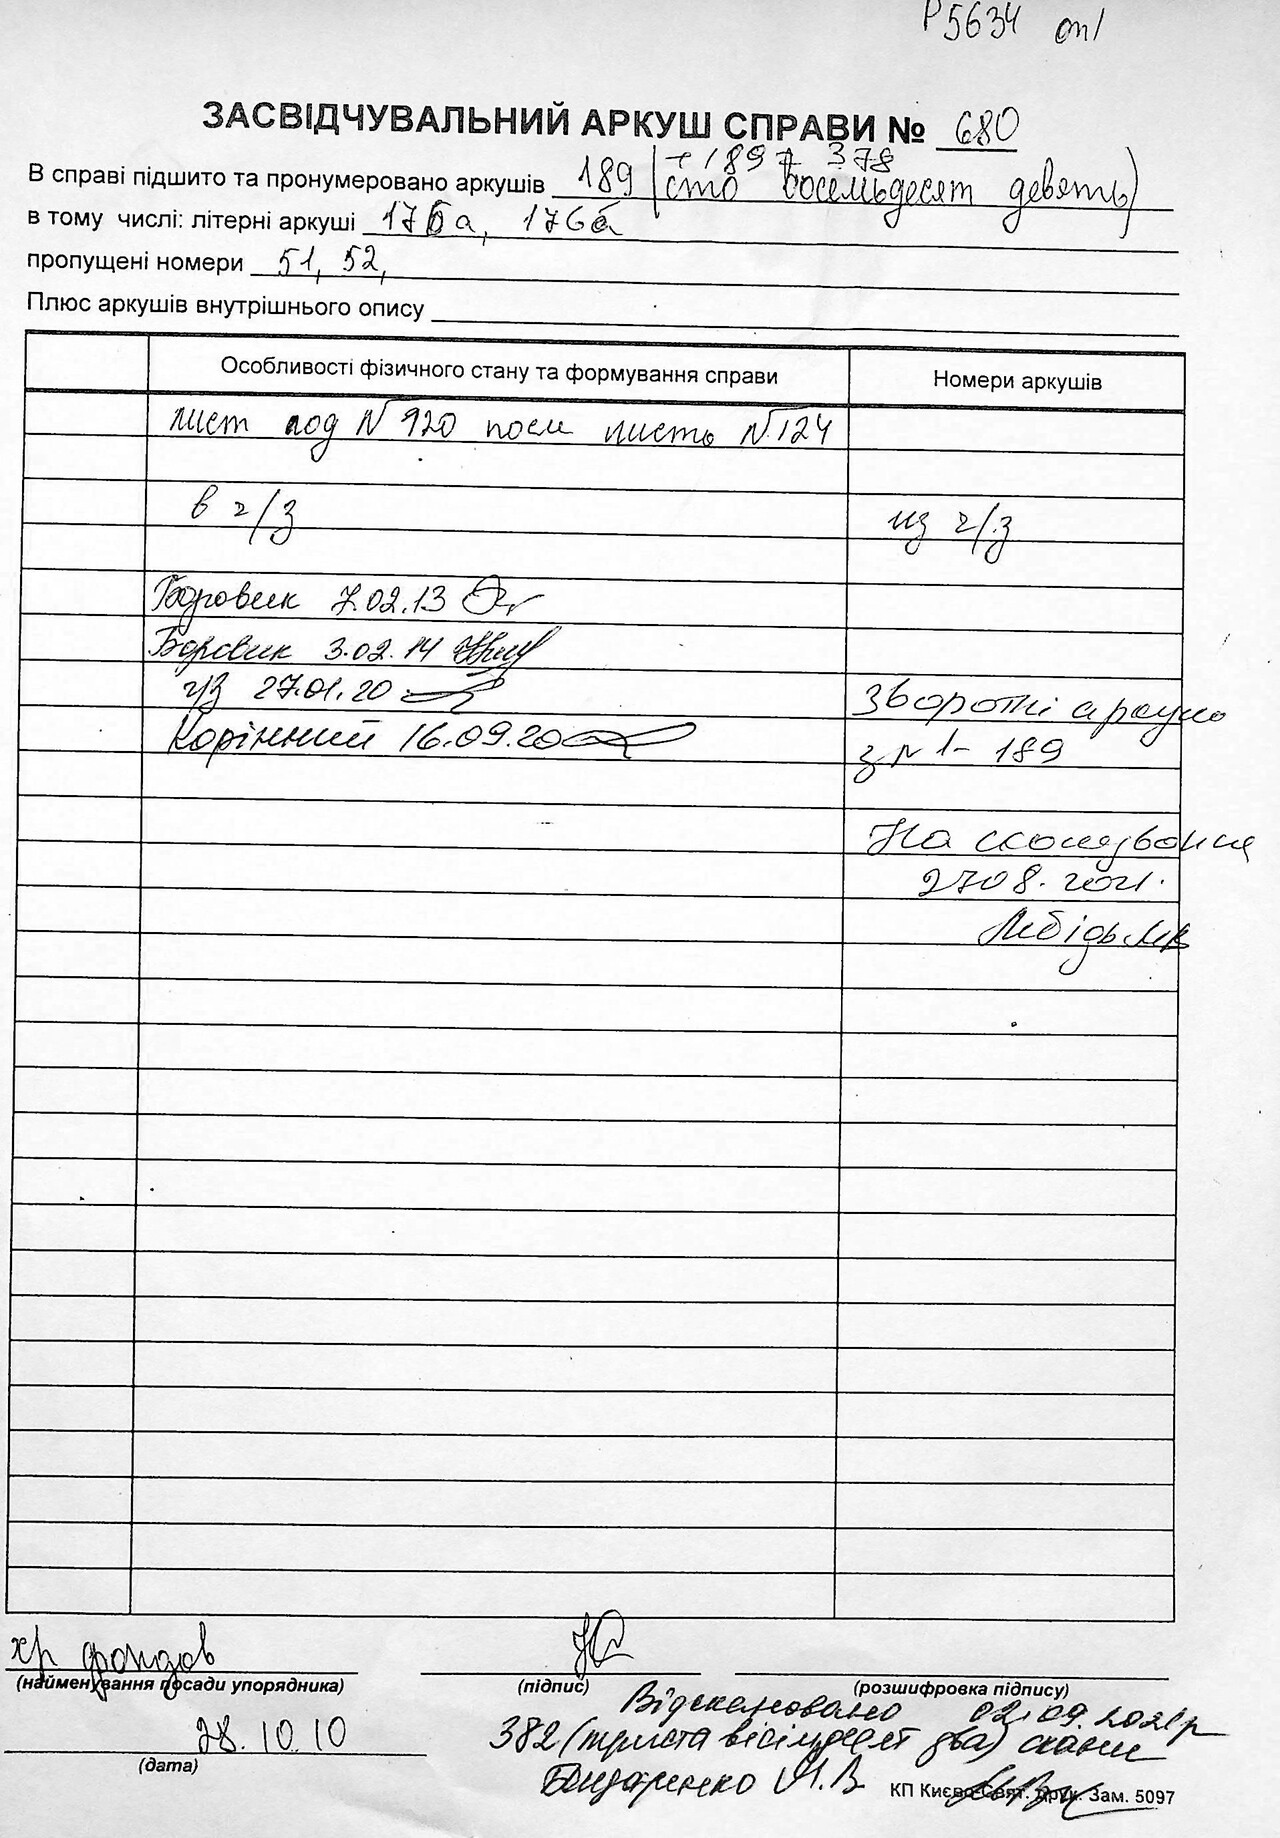 Р5634 оп1
ЗАСВІДЧУВАЛЬНИЙ АРКУШ СПРАВИ № 680
+ 189 = 378
В справі підшито та пронумеровано аркушів 189 (сто восемьдесят девять)
в тому числі: літерні аркуші 176а, 176б
пропущені номери 51, 52,
Плюс аркушів внутрішнього опису
Особливості фізичного стану та формування справи
Номери аркушів
лист под № 120 после листа № 124
в ч/з
из ч/з
Боровик 7.02.13
Боровик 3.02.14
ч/з 27.01.20
Зворотні аркуші
Корінний 16.09.20
з № 1 - 189
На сканування
27 08. 2021.
Лебідь М.В
хр фондов
(найменування посади упорядника)
(підпис)
(розшифровка підпису)
Відскановано 02.09.2021р
28.10.10
382 (триста вісімдесят два) скани
(дата)
Бондаренко М.В.
КП Києво-Свят. друк. Зам. 5097